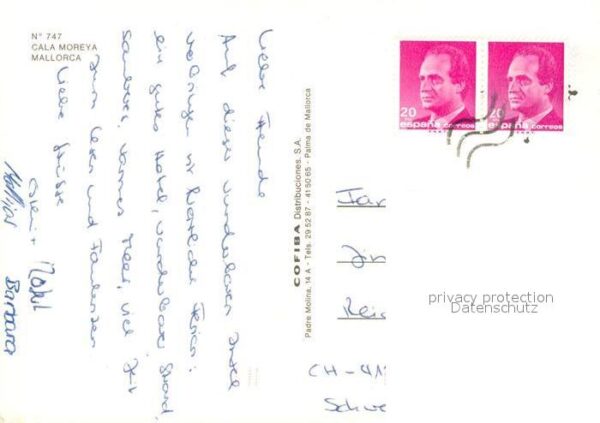 N° 747
CALA MOREYA
MALLORCA
Liebe Freunde
Auf dieser wunderbaren Insel
verbringen wir herrliche Ferien:
ein gutes Hotel, wunderbarer Strand,
sauberes, warmes Meer, viel Zeit
zum Lesen und Faulenzen
Liebe Grüsse
Mathias
Barbara
COFIBA Distribuciones, S.A.
Padre Molina, 14 A - Tels. 29 52 87 - 41 50 65 - Palma de Mallorca
20
españa correos
20
españa correos
privacy protection
Datenschutz
CH-41
Schwe